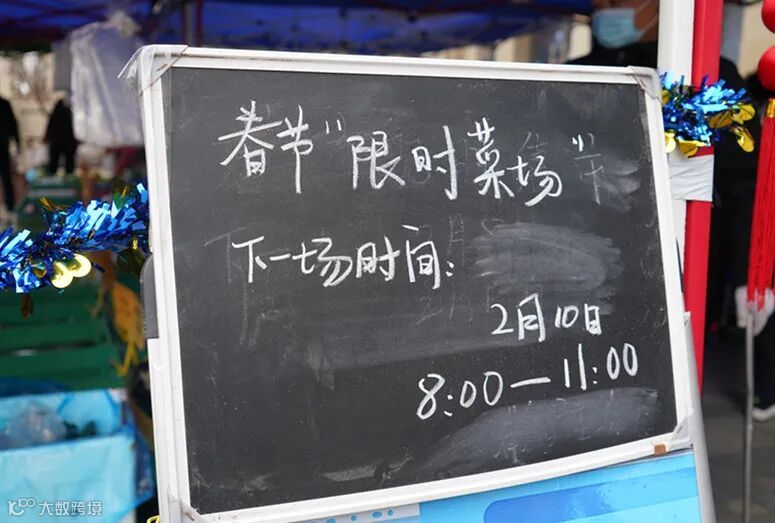 春节"限时菜场"
下一场时间:
2月10日
8:00—11:00
大数跨境